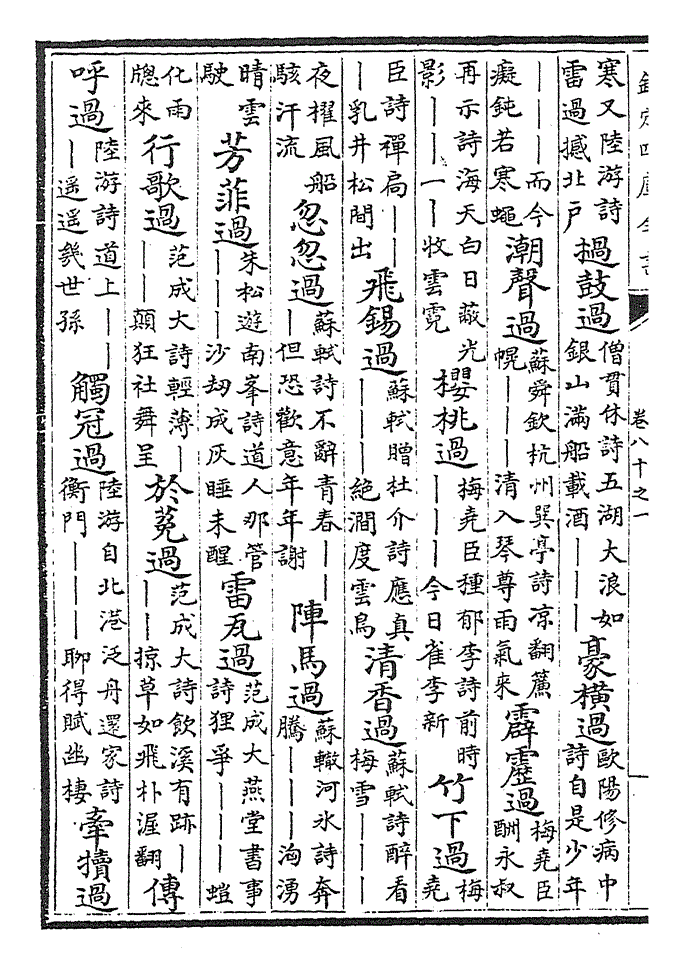 欽定四庫全書 卷八十之一
寒又陸游詩雷過撼北戶 撾鼓過 僧貫休詩五湖大浪如銀山滿船載酒｜｜｜ 豪橫過 歐陽修病中詩自是少年
｜｜｜而今癡鈍若寒蠅 潮聲過 蘇舜欽杭州巽亭詩凉翻簾幌｜｜｜清入琴尊雨氣來 霹靂過 梅堯臣酬永叔
再示詩海天白日蔽光影｜｜｜一｜收雲霓 櫻桃過 梅堯臣種郁李詩前時｜｜｜今日雀李新 竹下過 梅堯
臣詩禪扃｜｜｜乳井松間出 飛錫過 蘇軾贈杜介詩應真｜｜｜絶澗度雲鳥 清香過 蘇軾詩醉看梅雪｜｜｜
夜櫂風船駭汗流 忽忽過 蘇軾詩不辭青春｜｜｜但恐歡意年年謝 陣馬過 蘇轍河氷詩奔騰｜｜｜洶湧
晴雲駛 芳菲過 朱松遊南峯詩道人那管｜｜｜沙劫成灰睡未醒 雷瓦過 范成大燕堂書事詩狸爭｜｜｜螘
化雨牕來 行歌過 范成大詩輕薄｜｜｜顛狂社舞呈 於菟過 范成大詩飲溪有跡｜｜｜掠草如飛朴渥翻 傳
呼過 陸游詩道上｜｜｜遥遥幾世孫 觸冠過 陸游自北港泛舟還家詩衡門｜｜｜聊得賦幽棲 牽犢過